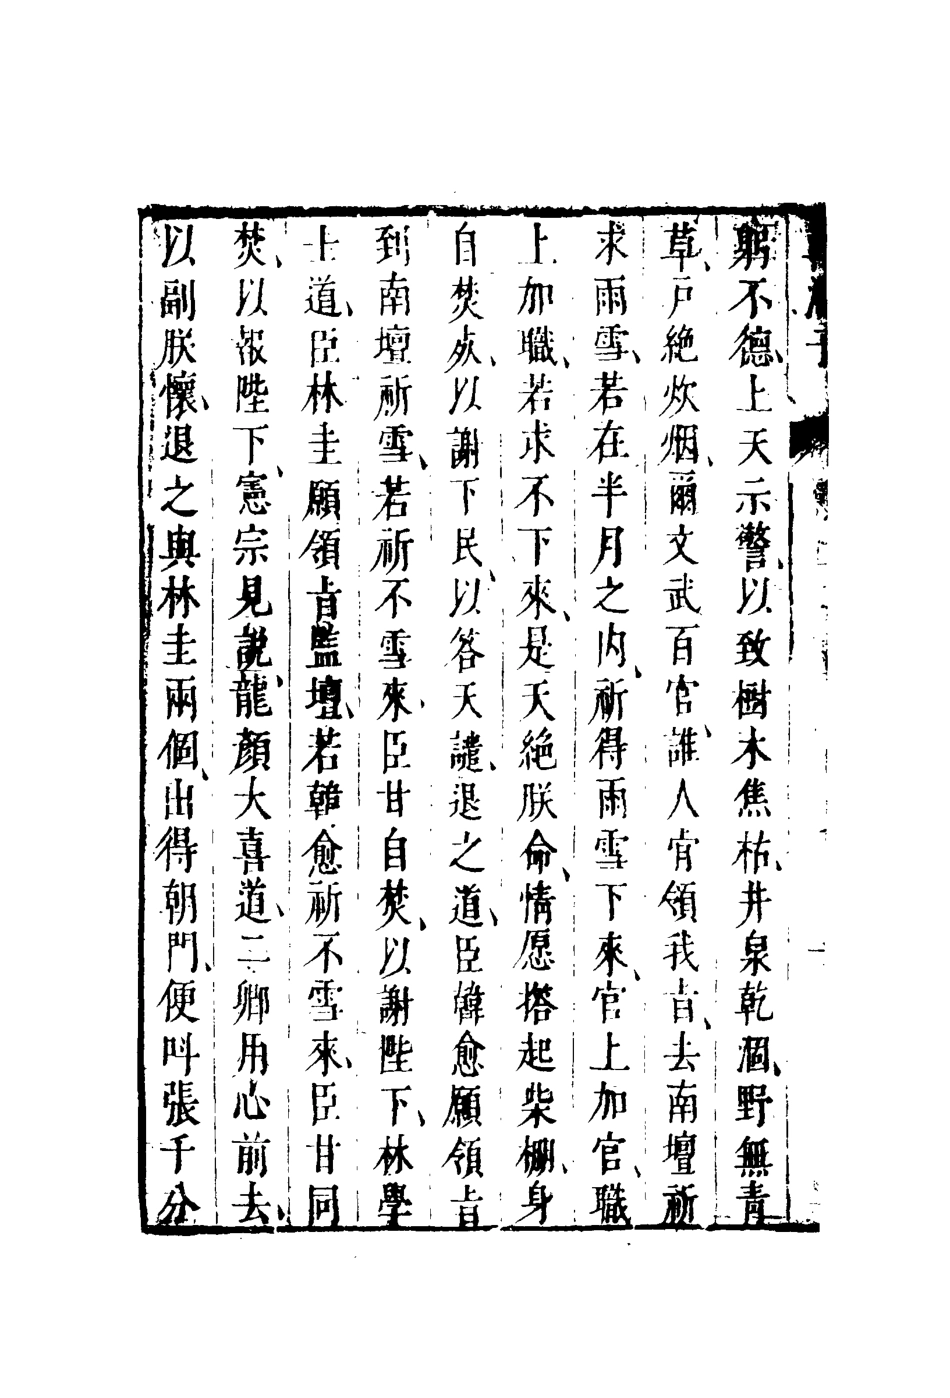 躬不德、上天示警、以致樹木焦枯、井泉乾涸、野無青
草、戶絶炊烟、爾文武百官、誰人肯領我旨、去南壇祈
求雨雪、若在半月之内、祈得雨雪下來、官上加官、職
上加職、若求不下來、是天絶朕命、情愿搭起柴棚、身
自焚死、以謝下民、以答天譴、退之道、臣韓愈願領旨
到南壇祈雪、若祈不雪來、臣甘自焚、以謝陛下、林學
士道、臣林圭願領旨監壇、若韓愈祈不雪來、臣甘同
焚、以報陛下、憲宗見說、龍顏大喜道、二卿用心前去、
以副朕懷、退之與林圭兩個、出得朝門、便呌張千分